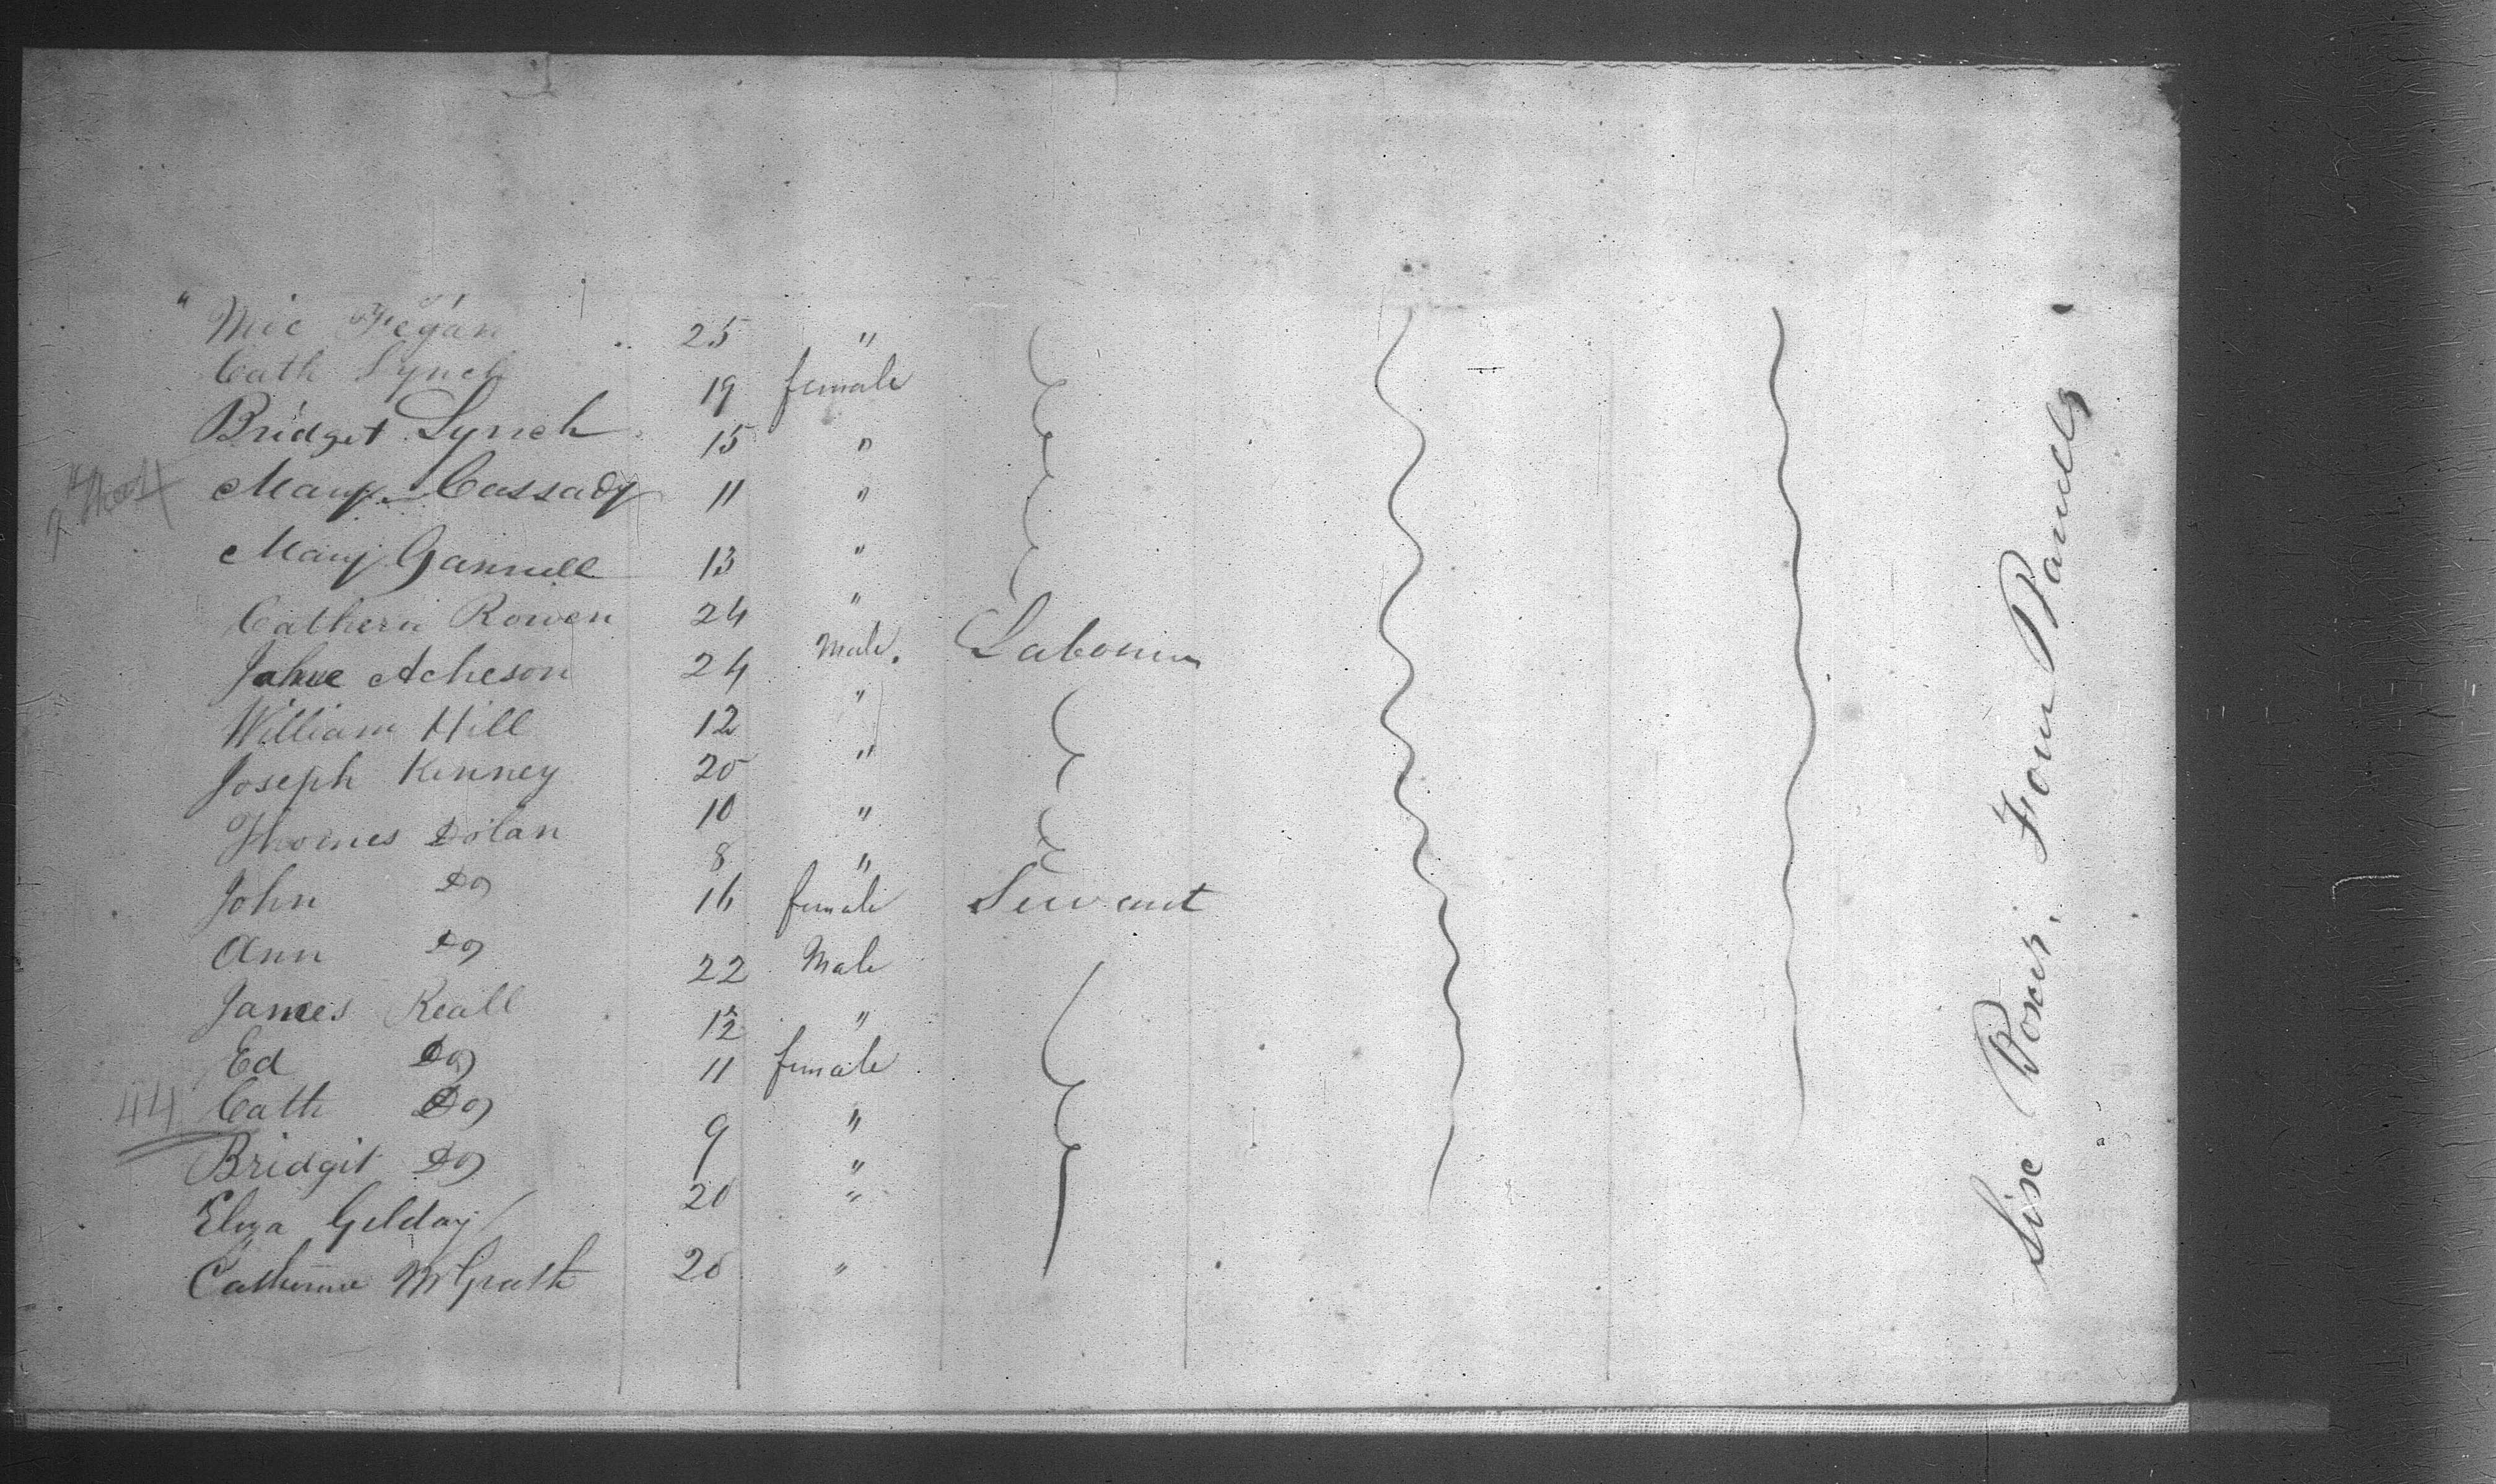 " Mic Fegan .. 25 "
Cath Lynch 19 female
Bridget Lynch 15 "
Mary Cassady 11 "
Mary Gannell 13 "
Cathern Rowen 24 "
Acheson 24 Male. Labourer
William Hill 12 "
Joseph Kinney 20 "
Thomes Dolan 10 "
John Do 8 "
Ann Do 16 female Servant
James Reall 22 Male
Ed Do 12 "
44 Cath Do 11 female
Bridgit Do 9 "
Eliza Gilday 20 "
Catherine McGrath 20 "
Six Boxes. Four Barrells